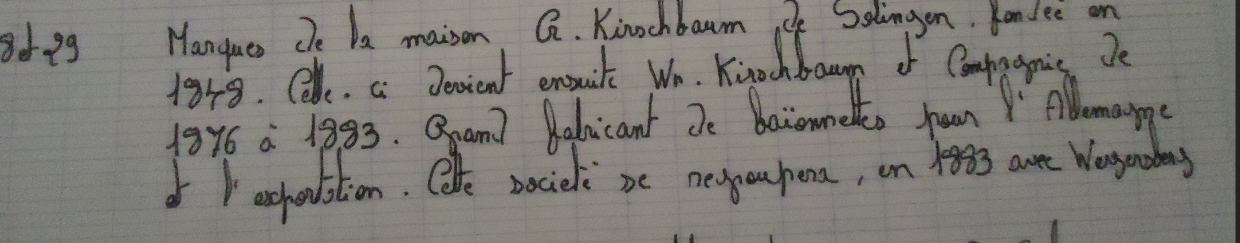 8 et 29 Marques de la maison G. Kirschbaum de Solingen. fondée en
1848. Celle-ci devient ensuite Wn. Kirschbaum et Compagnie de
1876 à 1883. Grand fabricant de baïonnettes pour l'Allemagne
et l'exportation. Cette société se regroupera, en 1883 avec Weyersberg